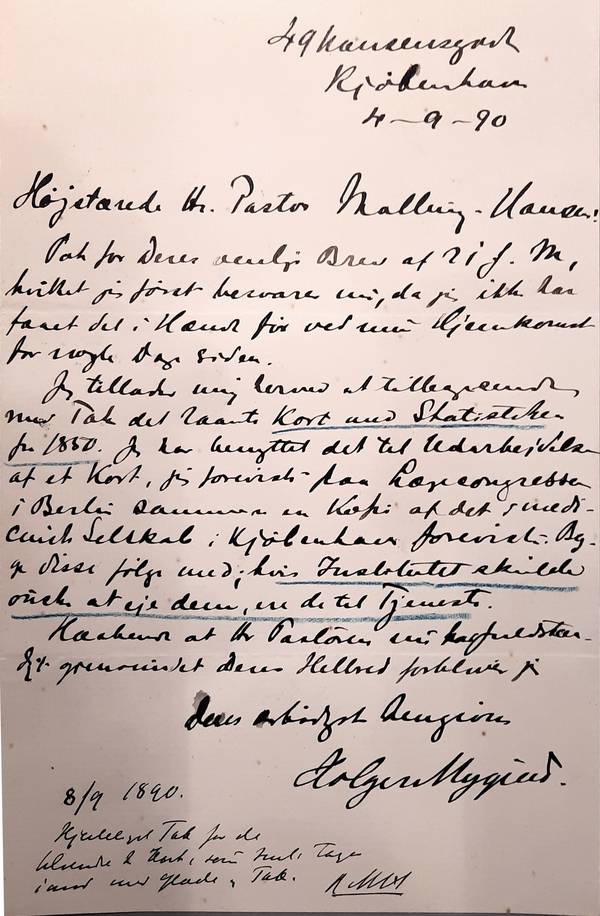 Kjøbenhavn
4-9-90
Højstærede Hr. Pastor Malling-Hansen!
Tak for Deres venlige Brev af 21 f. M,
hvilket jeg først besvarer nu, da jeg ikke har
faaet det i Hænde før ved min Hjemkomst
for nogle Dage siden.
Jeg tillader mig herved at tilbagesende
med Tak det laante Kort med Statistiken
fra 1880. Jeg har benyttet det til Udarbejdelse
af et Kort, jeg foreviste paa Lægecongressen
i Berlin sammen en Kopi af det i medi-
cinsk Selskab i Kjøbenhavn foreviste. Beg-
ge disse følge med; hvis Institutet skulde
ønske at eje dem, ere de til Tjeneste.
at Hr Pastoren nu
Deres Helbred forbliver jeg
Deres ærbødigst hengivne
Holger Mygind.
8/9 1890.
Hjerteligst Tak for de
2 Kort, som Inst. tager
imod med Glæde og Tak.
RMH